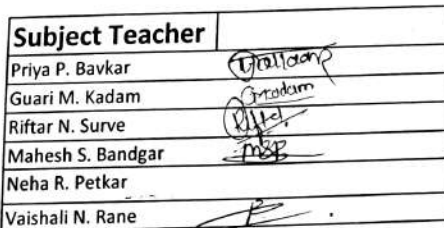 Subject Teacher
Priya P. Bavkar
Guari M. Kadam Gkadam
Riftar N. Surve
Mahesh S. Bandgar MSB
Neha R. Petkar
Vaishali N. Rane